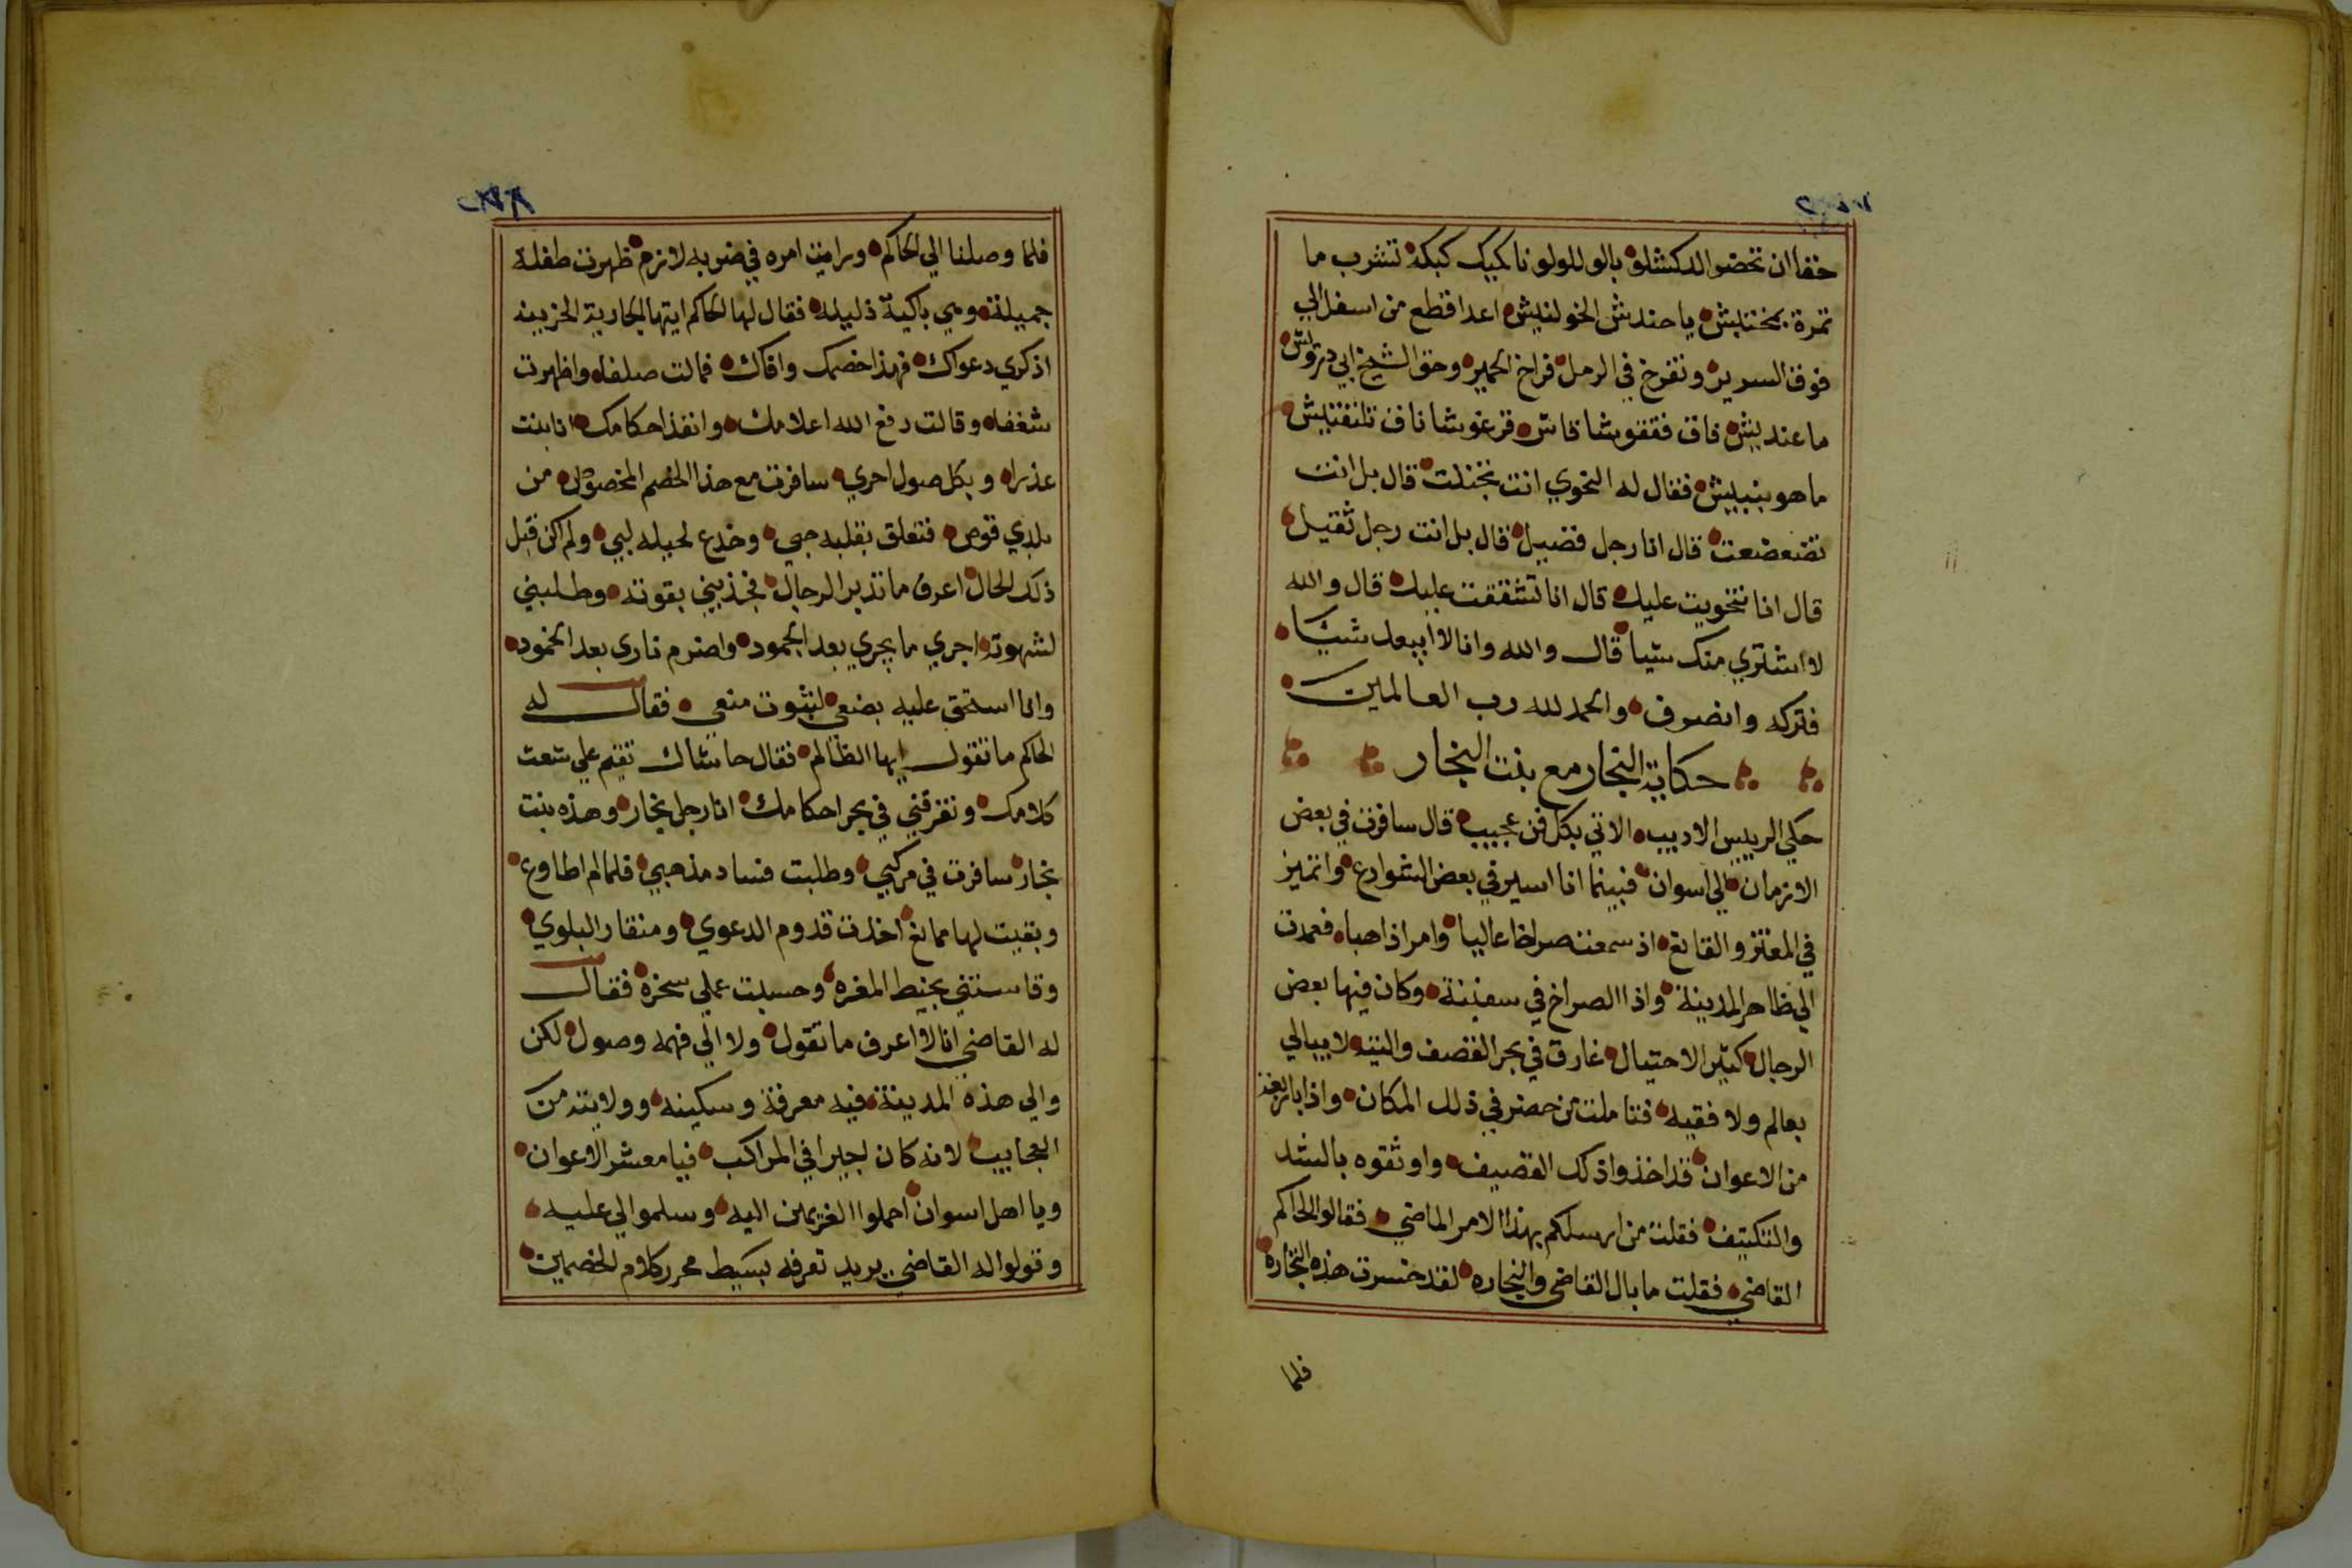 خفا ان تحضو الدكشلو بالو للولو ناكبيك كبكه تشرب ما
تمرة بمخنتبش يا حندش الخولنبش اعدا قطع من اسفل الي
فوق السرير وتفرخ في الرمل فراخ الحمير وحق الشيخ ابي درتوش
ما عنديش فاق فقفوشا قاش قرغوشا ناف تلنفنتبش
ما هو بنبيش فقال له النحوي انت تخندت قال بل انت
تضعضعت قال انا رجل فضيل قال بل انت رجل ثقيل
قال انا نتخويت عليك قال انا تشققت عليك قال والله
لا اشتري منك شيا قال والله وانا لا ابيعك شيئا
فتركه وانصرف والحمد لله رب العالمين
حكاية النجار مع بنت النجار
حكي الرييس الاديب الاتي بكل فن عجيب قال سافرت في بعض
الازمان الي اسوان فبينما انا اسير في بعض الشوارع واتميز
في المعتز والقانع اذ سمعت صراخا عاليا وامرا ذاهبا فعمدت
الي ظاهر المدينة واذا الصراخ في سفينة وكان فيها بعض
الرجال كثير الاحتيال غارق في بحر القصف والتيه لا يبالي
بعالم ولا فقيه فتاملت من حضر في ذلك المكان واذا باربعة
من الاعوان قد اخذوا ذلك القصيف واوثقوه بالشد
والتكتيف فقلت من ارسلكم بهذا الامر الماضي فقالوا الحاكم
القاضي فقلت ما بال القاضي والنجاره لقد خسرت هذه التجاره
فلما
فلما وصلنا الي الحاكم ورايت امره في ضربه لازم ظهرت طفلة
جميلة وهي باكية ذليله فقال لها الحاكم ايتها الجارية الحزينه
اذكري دعواك فهذا خصمك وافاك فمالت صلفا واظهرت
شغفا وقالت رفع الله اعلامك وانفذ احكامك انا بنت
عذرا وبكل صول احري سافرت مع هذا الخصم المخصوص من
بلدي قوص فتعلق بقلبه حبي وخدع لحيله لبي ولم اكن قبل
ذلك الحال اعرف ما تدبر الرجال فجذبني بقوته وطلبني
لشهوته اجري ما يجري بعد الجمود واضرم ناري بعد الخمود
وانا استحق عليه بضعي لثبوت منعي فقال له
الحاكم ما تقول ايها الظالم فقال حاشاك تقيم علي شعث
كلامك وتغرقني في بحر احكامك انا رجل نجار وهذه بنت
نجار سافرت في مركبي وطلبت فساد مذهبي فلما لم اطاوع
وبقيت لها ممانع اخذت قدوم الدعوي ومنقار البلوي
وقاستني بخيط المغره وحسبت عملي سخرة فقال
له القاضي انا لا اعرف ما تقول ولا الي فهمه وصول لكن
والي هذه المدينة فيه معرفة وسكينه وولايته من
العجايب لانه كان اجيرا في المراكب فيا معشر الاعوان
ويا اهل اسوان احملوا الغريمين اليه وسلموا لي عليه
وقولوا له القاضي يريد تعرفه بسيط محرر كلام الخصمين